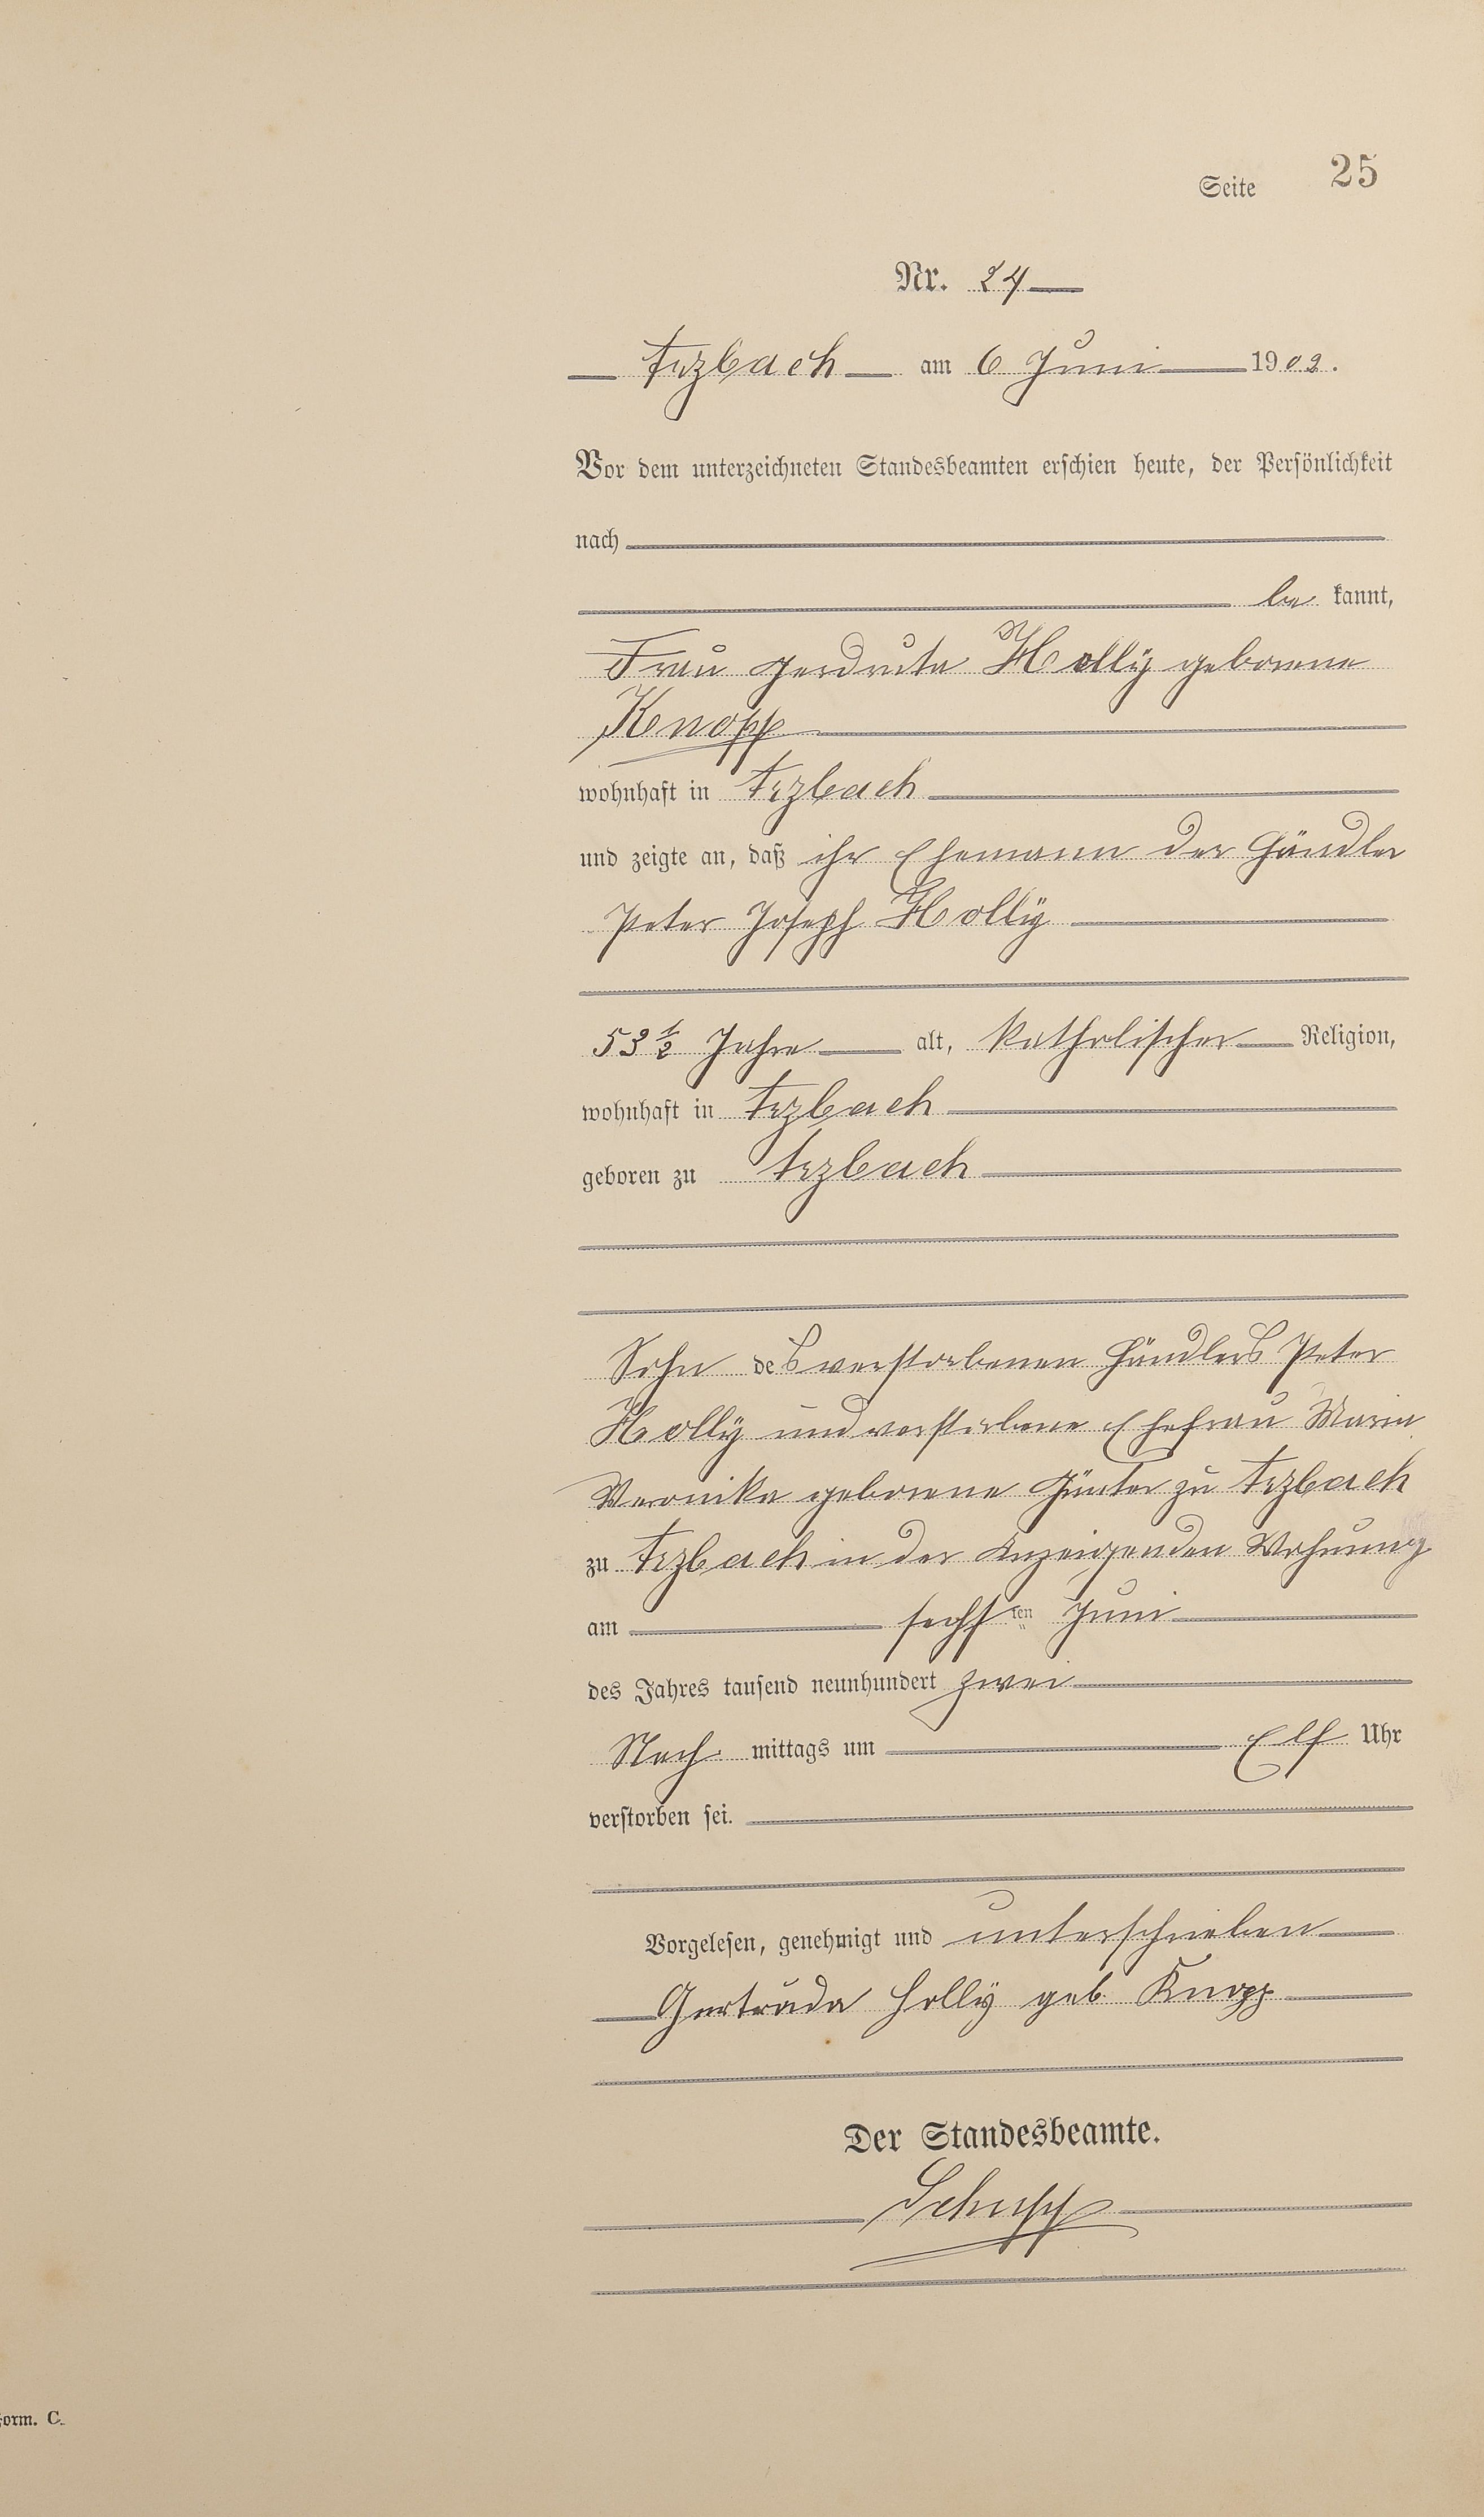 Seite 25
Nr. 24
Arzbach am 6 Juni 1902.
Vor dem unterzeichneten Standesbeamten erschien heute, der Persönlichkeit
nach
be kannt,
Frau Gerdruta Holly geborene
Knopp
wohnhaft in Arzbach
und zeigte an, daß ihr Ehemann der Händler
Peter Joseph Holly
53 1/2 Jahre alt, katholischer Religion,
wohnhaft in Arzbach
geboren zu Arzbach
Sohn des verstorbenen Händlers Peter
Holly und verstorbene Ehefrau Maria
Veronika geborene Günter zu Arzbach
zu Arzbach in der Anzeigenden Wohnung
am sechsten Juni
des Jahres tausend neunhundert zwei
Nach mittags um Elf Uhr
verstorben sei.
Vorgelesen, genehmigt und unterschrieben
Gertruda Holly geb. Knopp
Der Standesbeamte.
Schupp
Form. C.